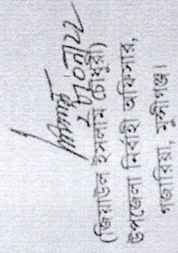 (জিয়াউল ইসলাম চৌধুরী)
উপজেলা নির্বাহী অফিসার,
গজারিয়া, মুন্সীগঞ্জ।